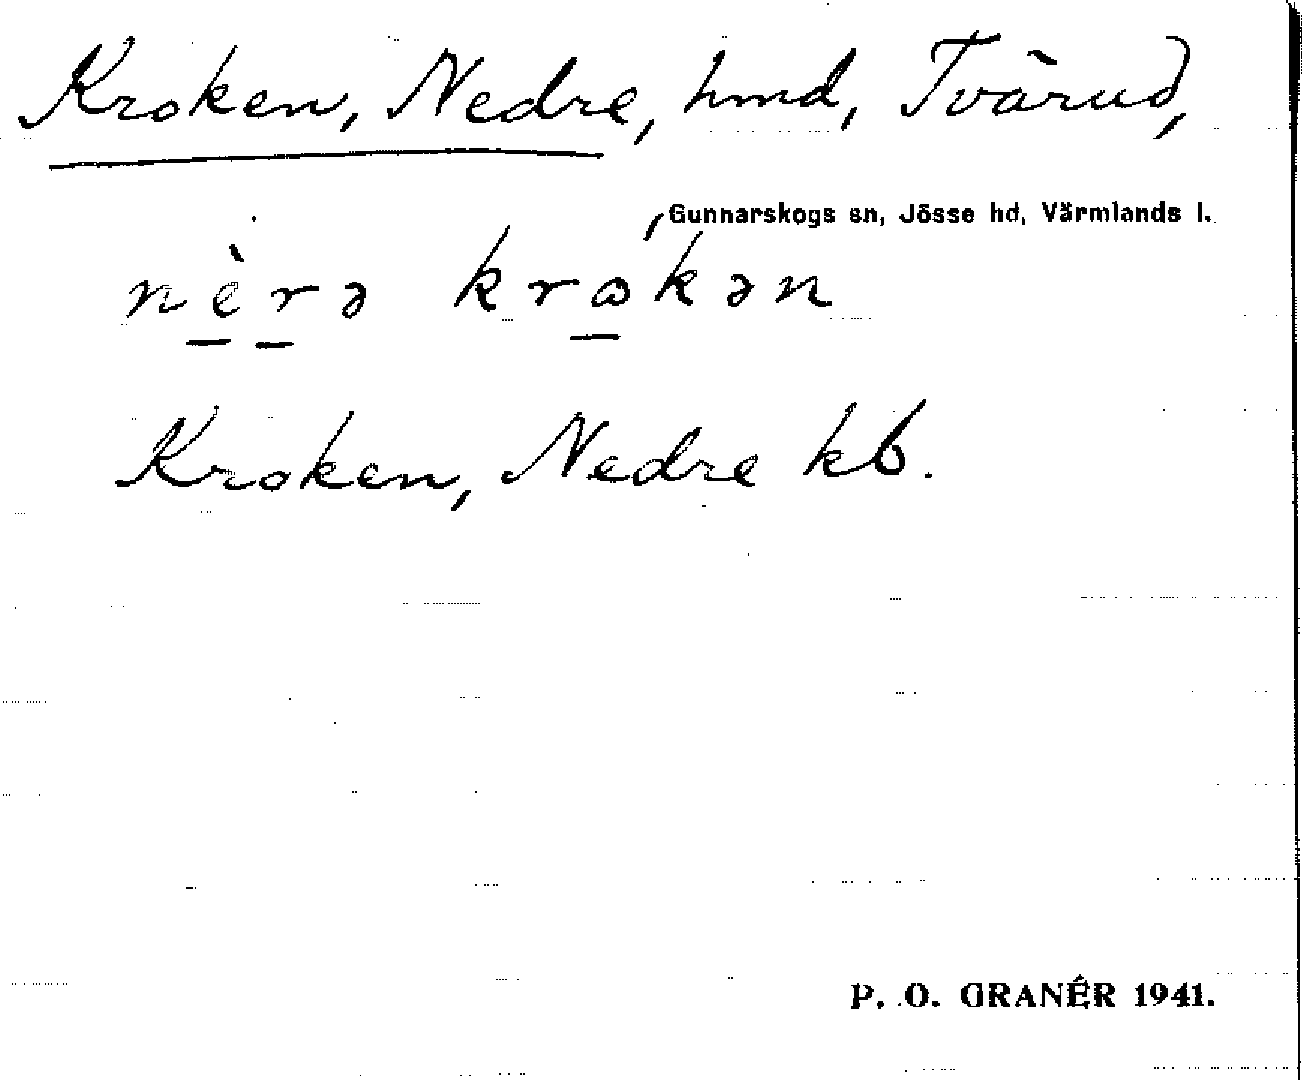 Kroken, Nedre, hmd, Tvärud,
Gunnarskogs sn, Jösse hd, Värmlands l.
nèrə krokən
Kroken, Nedre kb.
P. O. GRANÉR 1941.